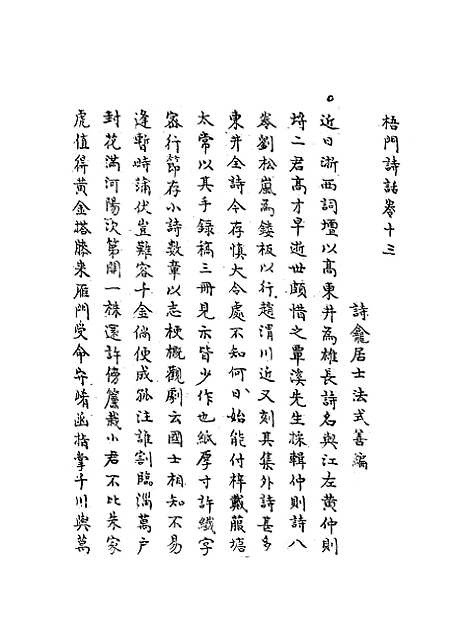 梧門詩話卷十三
詩龕居士法式善編
近日浙西詞壇以高東井為雄長詩名與江左黃仲則
埒二君高才早逝世頗惜之覃溪先生採輯仲則詩八
卷劉松嵐為鏤板以行趙渭川近又刻其集外詩甚多
東井全詩今存慎大令處不知何日始能付梓戴菔塘
太常以其手錄稿三冊見示皆少作也紙厚寸許纖字
密行節存小詩數章以志梗概觀劇云國士相知不易
逢暫時蒲伏豈難容千金倘便成孤注誰割臨淄萬戶
封花滿河陽次第開一株還許傍簷栽小君不比朱家
虎值得黃金搭膝來雁門受命守崤函指掌千川與萬